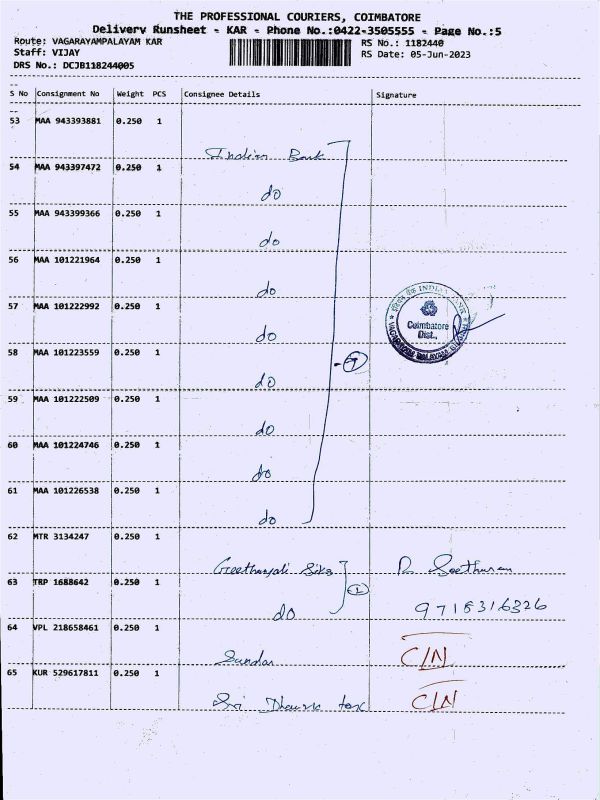 THE PROFESSIONAL COURIERS, COIMBATORE
Delivery Runsheet - KAR - Phone No.:0422-3505555 - Page No.:5
Route: VAGARAYAMPALAYAM KAR RS No.: 1182440
Staff: VIJAY RS Date: 05-Jun-2023
DRS No.: DCJB118244005
S No Consignment No Weight PCS Consignee Details Signature
53 MAA 943393881 0.250 1
Indian Bank
54 MAA 943397472 0.250 1
do
55 MAA 943399366 0.250 1
do
56 MAA 101221964 0.250 1
do
57 MAA 101222992 0.250 1
do
INDIAN BANK
Coimbatore
Dist.,
58 MAA 101223559 0.250 1
do
59 MAA 101222509 0.250 1
do
60 MAA 101224746 0.250 1
do
61 MAA 101226538 0.250 1
do
62 MTR 3134247 0.250 1
Geethanjali
63 TRP 1688642 0.250 1
do 9718316326
64 VPL 218658461 0.250 1
Sundar C/N
65 KUR 529617811 0.250 1
Sri tex C/N